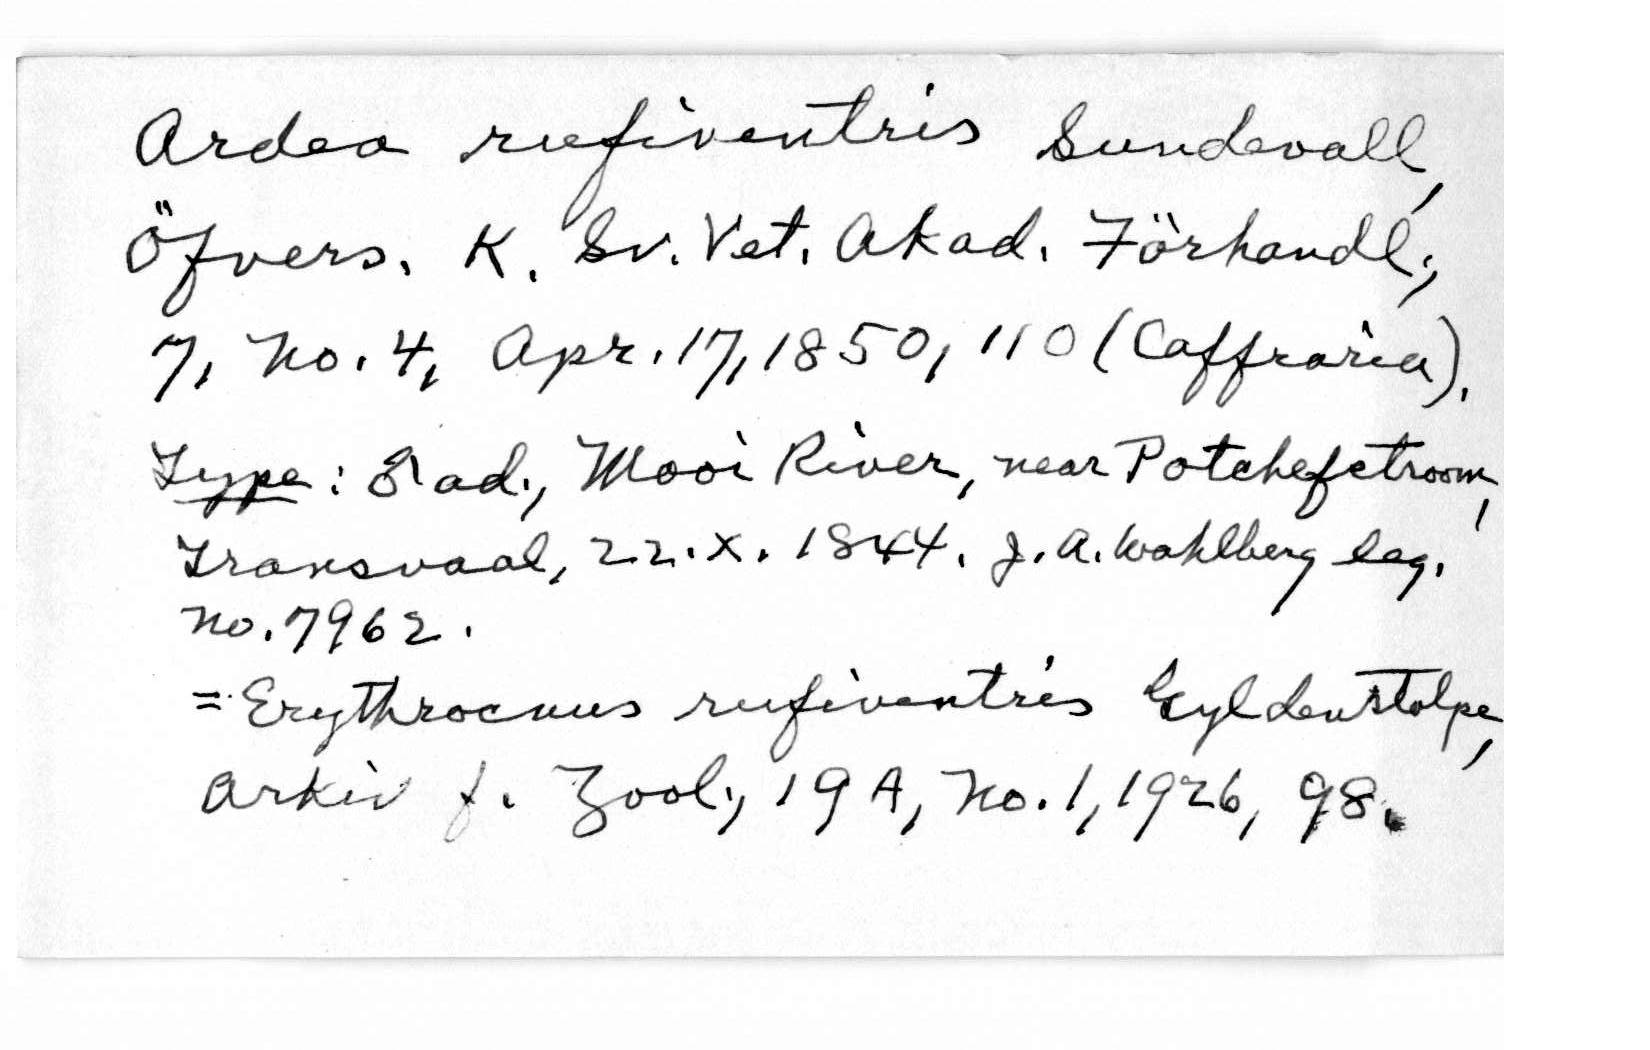 Ardea rufiventris Sundevall,
Öfvers. K. Sv. Vet. Akad. Förhandl.,
7, no. 4, Apr. 17, 1850, 110 (Caffraria).
Type: ♂ ad., Mooi River, near Potchefstroom,
Transvaal, 22.X.1844. J.A. Wahlberg leg.
no. 7962.
= Erythrocnus rufiventris Gyldenstolpe,
Arkiv f. Zool., 19A, no. 1, 1926, 98.